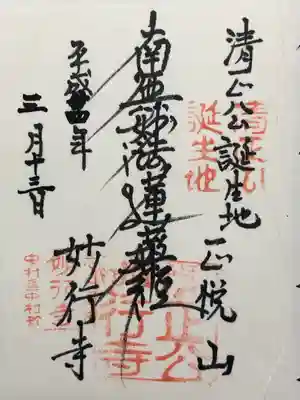 清正公誕生地 正悦山
南無妙法蓮華経
妙行寺
平成四年
三月十三日
清正公
誕生地
清正公
妙行寺